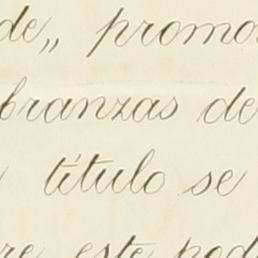 de„ promo
branzas de
título se
re este pod